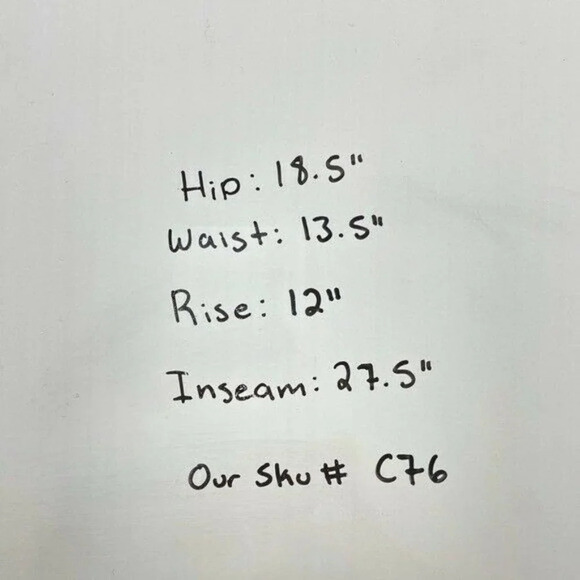 Hip: 18.5"
Waist: 13.5"
Rise: 12"
Inseam: 27.5"
Our Sku # C76